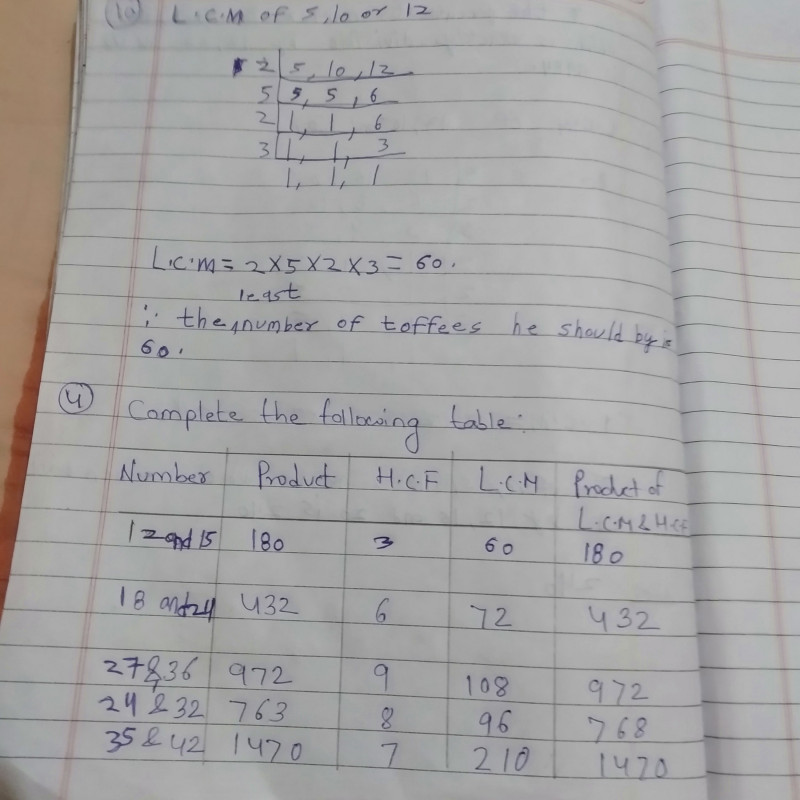 (10) L.C.M OF 5,10 or 12
2 | 5, 10, 12
5 | 5, 5, 6
2 | 1, 1, 6
3 | 1, 1, 3
1, 1, 1
L.C.M = 2×5×2×3 = 60.
least
∴ the number of toffees he should by is
60.
(4) Complete the following table:
Number Product H.C.F L.C.M Product of
L.C.M & H.CF
12 and 15 180 3 60 180
18 and 24 432 6 72 432
27 & 36 972 9 108 972
24 & 32 763 8 96 768
35 & 42 1470 7 210 1470